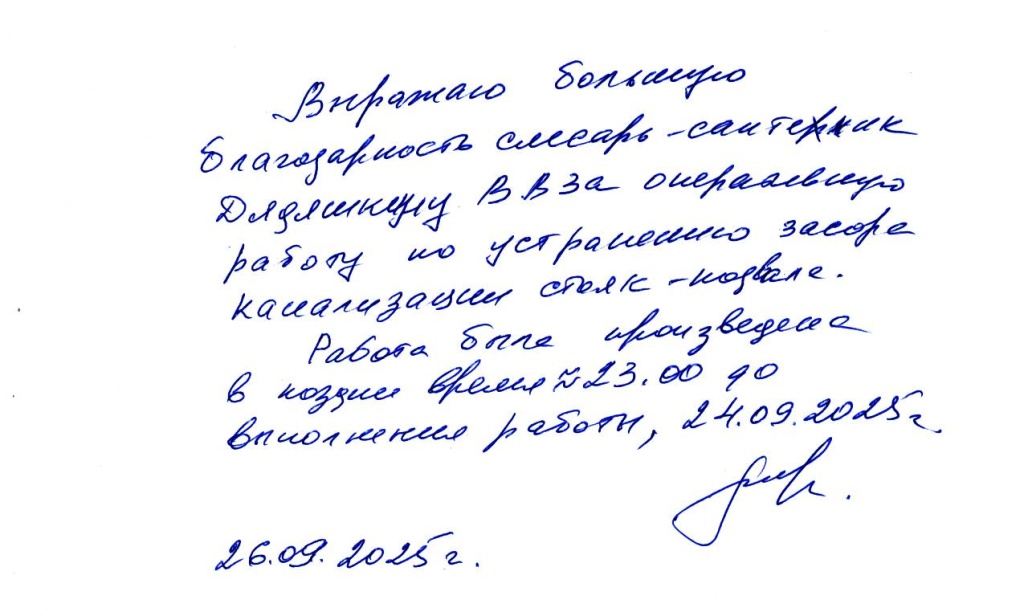 Выражаю большую
благодарность слесарь-сантехник
Дядяшкину В В за оперативную
работу по устранению засора
канализации стояк-подвала.
Работа была произведена
в поздни время ≈ 23.00 до
выполнения работы, 24.09.2025г.
26.09.2025г.